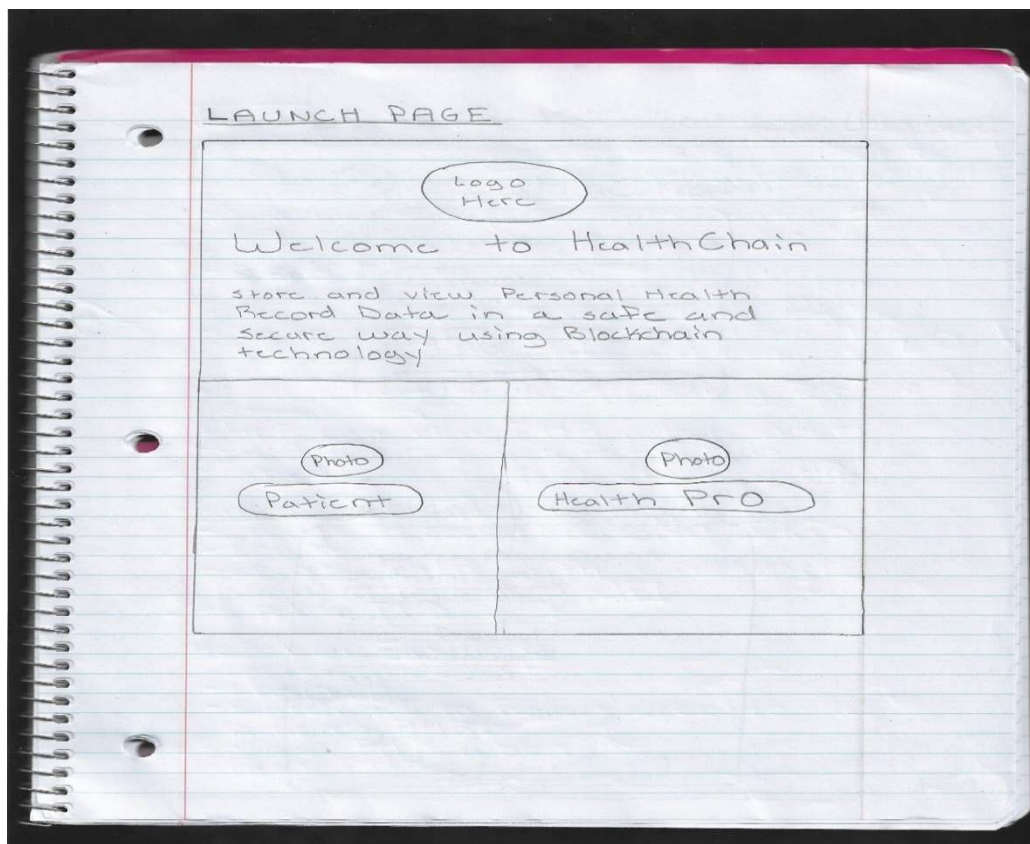 LAUNCH PAGE
Logo
Here
Welcome to HealthChain
store and view Personal Health
Record Data in a safe and
secure way using Blockchain
technology
Photo
Patient
Photo
Health Pro